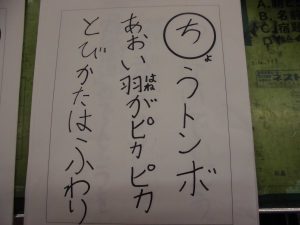 ちょうトンボ
あおい羽がピカピカ
はね
とびかたはふわり